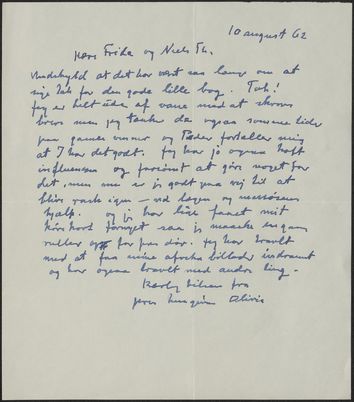 10 august 62
Kære Frida og Niels Th.
Undskyld at det har varet saa længe om at
sige Tak for den gode lille bog. Tak!
Jeg er helt ude af vane med at skrive
breve men jeg tænker da ogsaa somme tider
paa gamle venner og Peder fortæller mig
at I har det godt. Jeg har jo ogsaa haft
influenza og forsømt at gøre noget for
det, men nu er jeg godt paa vej til at
blive rask igen – ved lægen og
hjælp. og jeg har lige faaet mit
kørekort fornyet saa jeg maaske en gang
ruller op for jeres dør. Jeg har travlt
med at faa mine afrika billeder indrammet
og har ogsaa travlt med andre ting.
Kærlig hilsen fra
jeres hengivne Olivia